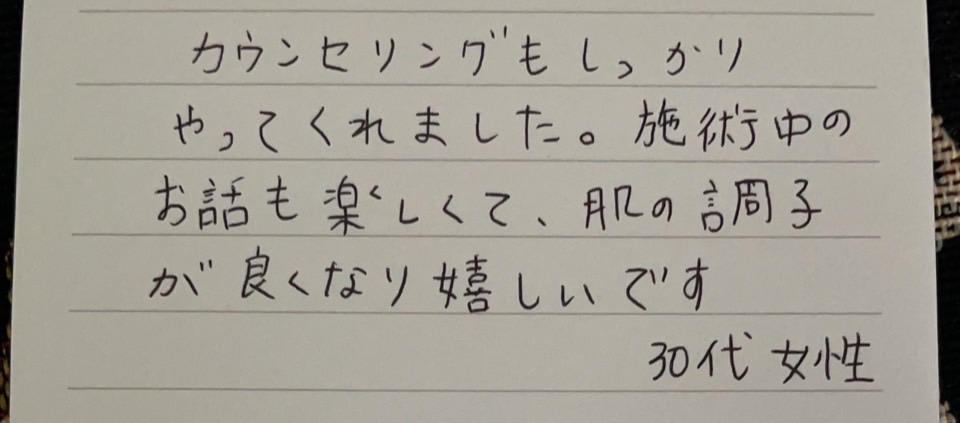 カウンセリングもしっかり
やってくれました。施術中の
お話も楽しくて、肌の調子
が良くなり嬉しいです
30代 女性